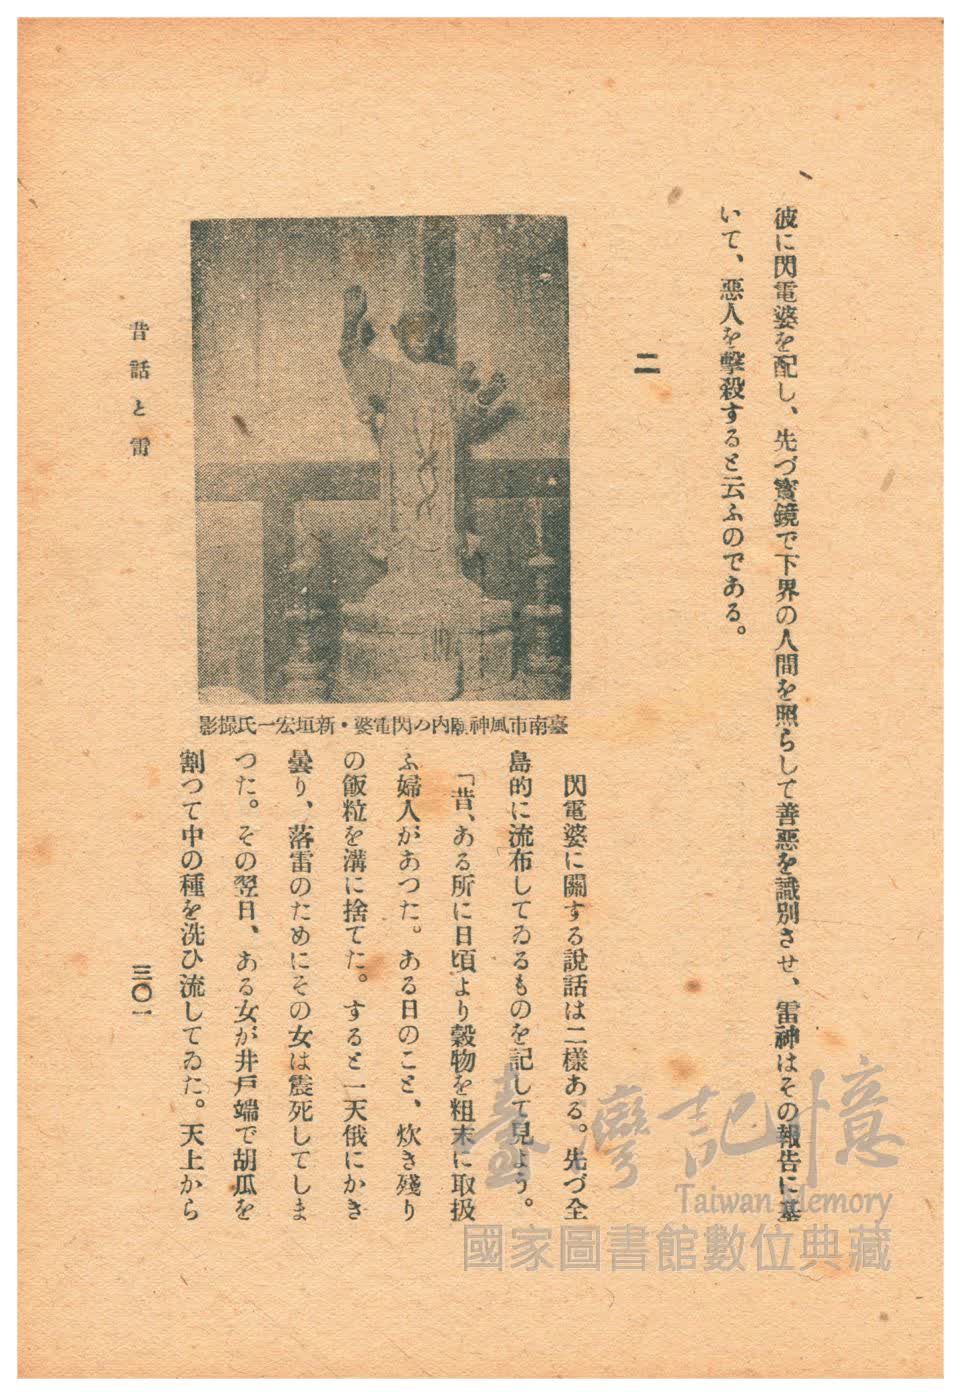 彼に閃電婆を配し、先づ寶鏡で下界の人間を照らして善惡を識別させ、雷神はその報告に基
いて、惡人を擊殺すると云ふのである。
二
臺南市風神廟内の閃電婆・新垣宏一氏撮影
閃電婆に關する說話は二樣ある。先づ全
島的に流布してゐるものを記して見よう。
「昔、ある所に日頃より穀物を粗末に取扱
ふ婦人があつた。ある日のこと、炊き殘り
の飯粒を溝に捨てた。すると一天俄にかき
曇り、落雷のためにその女は震死してしま
つた。その翌日、ある女が井戶端で胡瓜を
割つて中の種を洗ひ流してゐた。天上から
昔話と雷
三〇一
臺灣記憶
Taiwan Memory
國家圖書館數位典藏